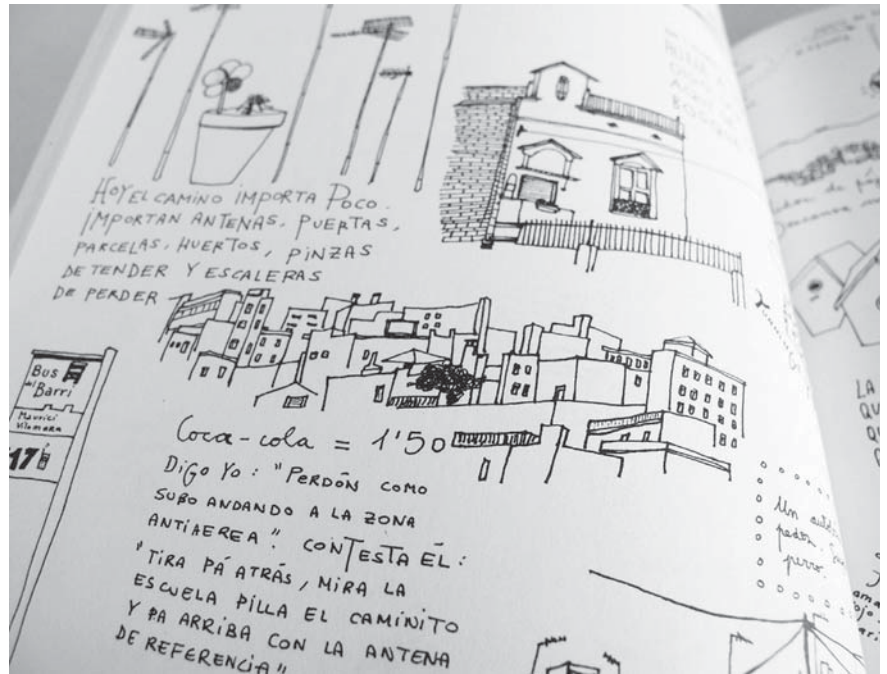 HOY EL CAMINO IMPORTA POCO.
IMPORTAN ANTENAS, PUERTAS,
PARCELAS, HUERTOS, PINZAS
DE TENDER Y ESCALERAS
DE PERDER
Bus
del Barri
Maurici
Vilomara
117
Coca-cola = 1'50
DIGO YO: "PERDÓN COMO
SUBO ANDANDO A LA ZONA
ANTIAEREA". CONTESTA ÉL:
"TIRA PÁ ATRÁS, MIRA LA
ESCUELA PILLA EL CAMINITO
Y PA ARRIBA CON LA ANTENA
DE REFERENCIA"
LA
QU
QU
Un
perro.